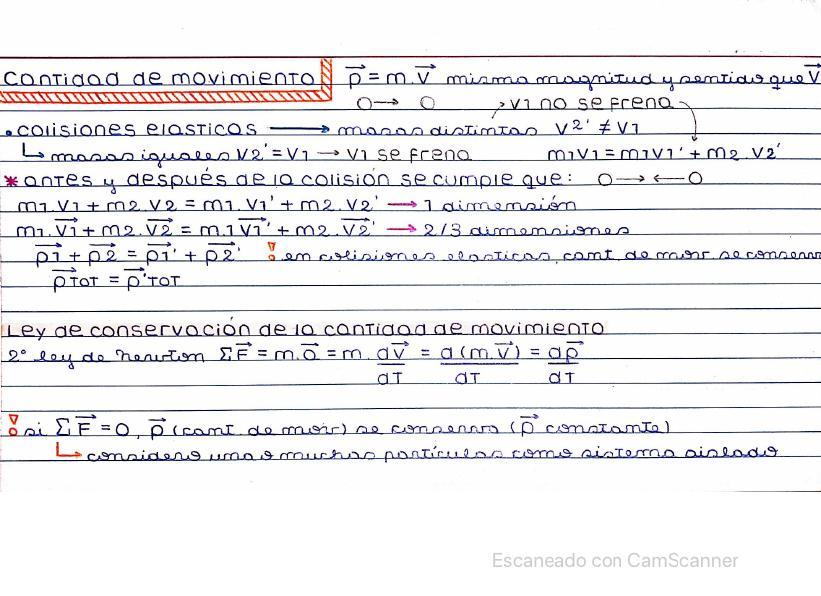 Cantidad de movimiento p⃗ = m.v⃗ misma magnitud y sentido que v⃗
→ v1 no se frena
• colisiones elasticas → masas distintas v2' ≠ v1
↳ masas iguales v2' = v1 → v1 se frena m1v1 = m1v1' + m2.v2'
* antes y después de la colisión se cumple que:
m1.v1 + m2.v2 = m1.v1' + m2.v2' → 1 dimensión
m1.v⃗1 + m2.v⃗2 = m.1v⃗1' + m2.v⃗2' → 2/3 dimensiones
p⃗1 + p⃗2 = p⃗1' + p⃗2' ! en colisiones elasticas cant. de mov. se conserva
p⃗TOT = p⃗'TOT
Ley de conservación de la cantidad de movimiento
2° ley de Newton ΣF⃗ = m.a⃗ = m.dv⃗/dT = d(m.v⃗)/dT = dp⃗/dT
! si ΣF⃗ = 0, p⃗ (cant. de mov) se conserva (p⃗ constante)
↳ considero una o muchas partículas como sistema aislado
Escaneado con CamScanner